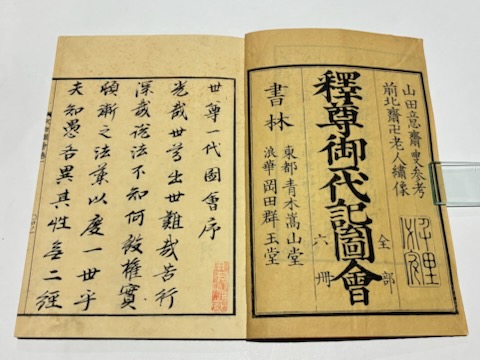 山田意齋叟参考
前北齋卍老人繍像
釋尊御一代記圖會
全部
六冊
書林
東都青木嵩山堂
浪華岡田群玉堂
世尊一代圖會序
哉世尊出世難哉苦行
深哉説法不知何設權實
頓漸之法兼以度一世乎
夫知愚各異其性無二經